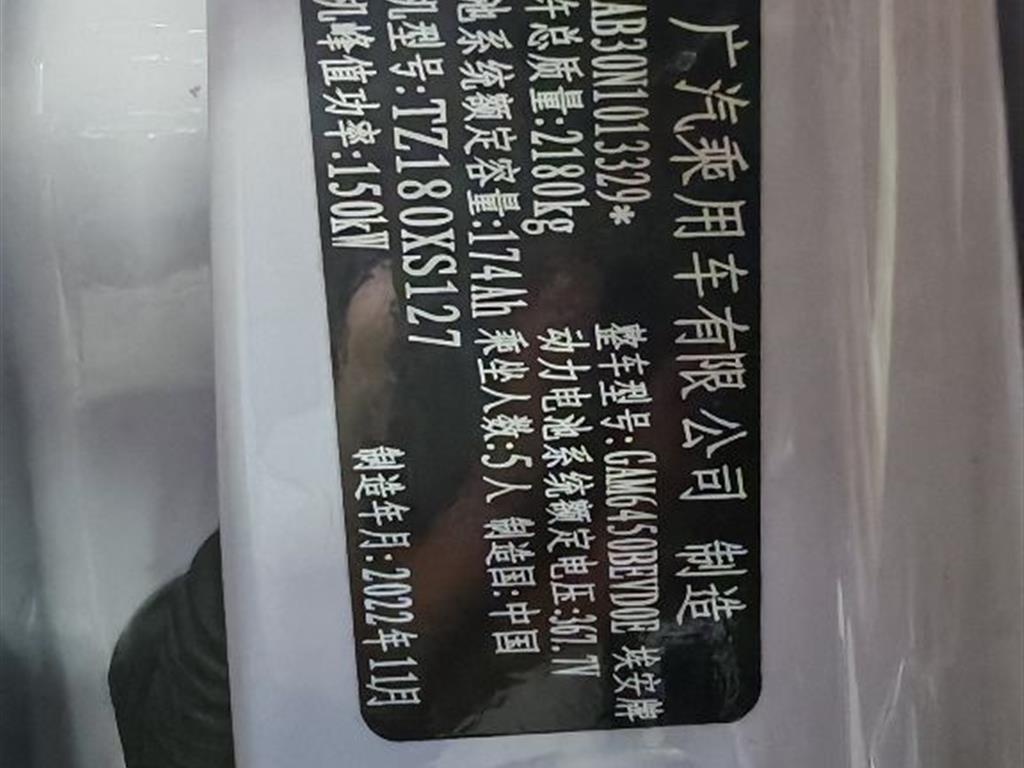 广汽乘用车有限公司 制造
AB30N1013329* 整车型号:GAM6450BEVD0E 埃安牌
许总质量:2180kg 动力电池系统额定电压:367.7V
池系统额定容量:174Ah 乘坐人数:5人 制造国:中国
机型号:TZ180XS127
机峰值功率:150kW 制造年月:2022年11月